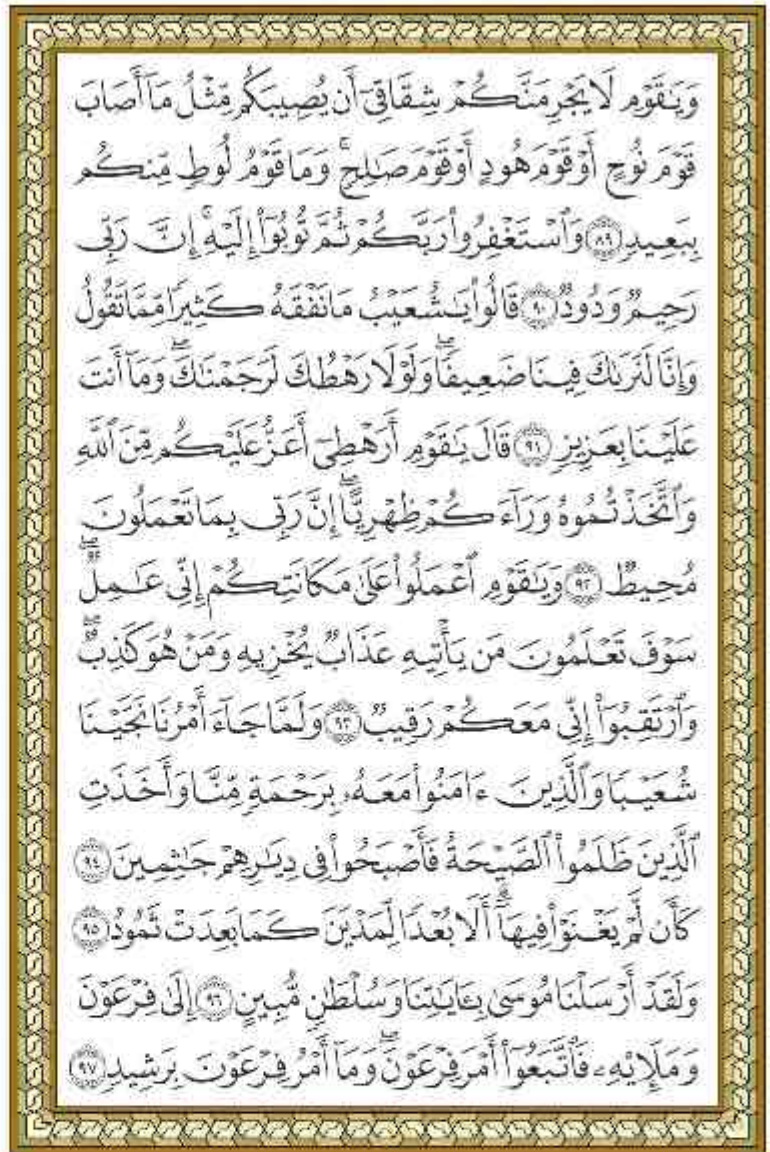 وَيَـٰقَوْمِ لَا يَجْرِمَنَّكُمْ شِقَاقِىٓ أَن يُصِيبَكُم مِّثْلُ مَآ أَصَابَ
قَوْمَ نُوحٍ أَوْ قَوْمَ هُودٍ أَوْ قَوْمَ صَـٰلِحٍ ۚ وَمَا قَوْمُ لُوطٍ مِّنكُم
بِبَعِيدٍ ٨٩ وَٱسْتَغْفِرُوا۟ رَبَّكُمْ ثُمَّ تُوبُوٓا۟ إِلَيْهِ ۚ إِنَّ رَبِّى
رَحِيمٌ وَدُودٌ ٩٠ قَالُوا۟ يَـٰشُعَيْبُ مَا نَفْقَهُ كَثِيرًا مِّمَّا تَقُولُ
وَإِنَّا لَنَرَىٰكَ فِينَا ضَعِيفًا ۖ وَلَوْلَا رَهْطُكَ لَرَجَمْنَـٰكَ ۖ وَمَآ أَنتَ
عَلَيْنَا بِعَزِيزٍ ٩١ قَالَ يَـٰقَوْمِ أَرَهْطِىٓ أَعَزُّ عَلَيْكُم مِّنَ ٱللَّهِ
وَٱتَّخَذْتُمُوهُ وَرَآءَكُمْ ظِهْرِيًّا ۖ إِنَّ رَبِّى بِمَا تَعْمَلُونَ
مُحِيطٌ ٩٢ وَيَـٰقَوْمِ ٱعْمَلُوا۟ عَلَىٰ مَكَانَتِكُمْ إِنِّى عَـٰمِلٌ ۖ
سَوْفَ تَعْلَمُونَ مَن يَأْتِيهِ عَذَابٌ يُخْزِيهِ وَمَنْ هُوَ كَـٰذِبٌ ۖ
وَٱرْتَقِبُوٓا۟ إِنِّى مَعَكُمْ رَقِيبٌ ٩٣ وَلَمَّا جَآءَ أَمْرُنَا نَجَّيْنَا
شُعَيْبًا وَٱلَّذِينَ ءَامَنُوا۟ مَعَهُۥ بِرَحْمَةٍ مِّنَّا وَأَخَذَتِ
ٱلَّذِينَ ظَلَمُوا۟ ٱلصَّيْحَةُ فَأَصْبَحُوا۟ فِى دِيَـٰرِهِمْ جَـٰثِمِينَ ٩٤
كَأَن لَّمْ يَغْنَوْا۟ فِيهَآ ۗ أَلَا بُعْدًا لِّمَدْيَنَ كَمَا بَعِدَتْ ثَمُودُ ٩٥
وَلَقَدْ أَرْسَلْنَا مُوسَىٰ بِـَٔايَـٰتِنَا وَسُلْطَـٰنٍ مُّبِينٍ ٩٦ إِلَىٰ فِرْعَوْنَ
وَمَلَإِي۟هِۦ فَٱتَّبَعُوٓا۟ أَمْرَ فِرْعَوْنَ ۖ وَمَآ أَمْرُ فِرْعَوْنَ بِرَشِيدٍ ٩٧